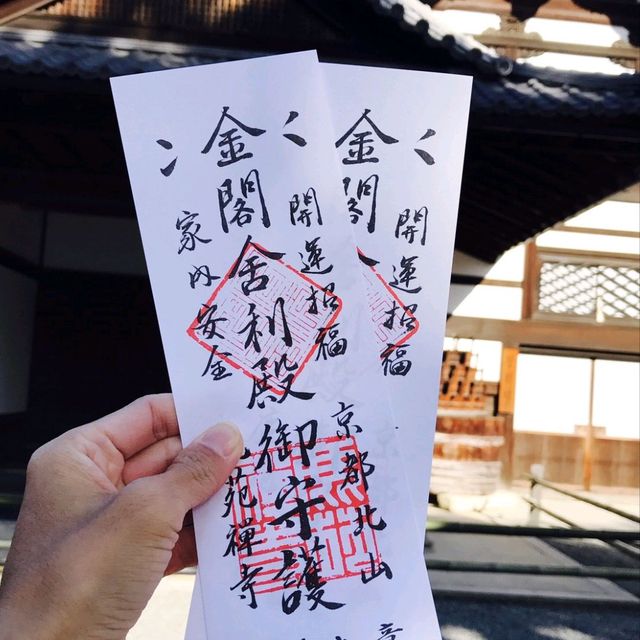 開運招福
京都北山
金閣舎利殿御守護
家内安全
苑禅寺
開運招福
金閣